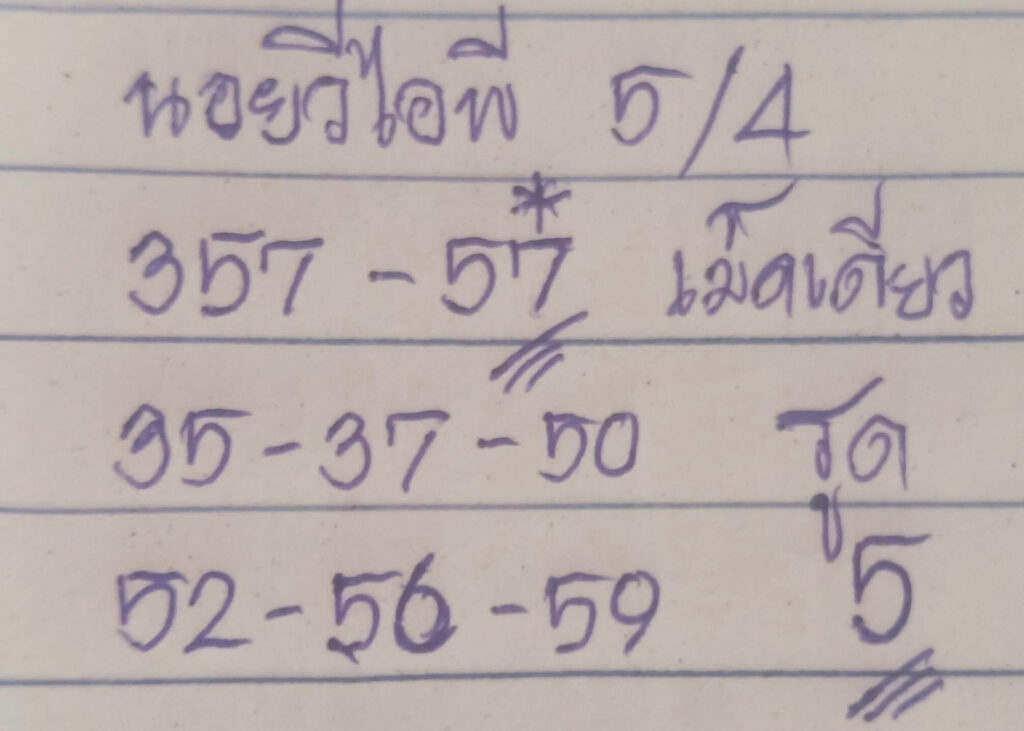 นอยวีไอพี 5/4
357 - 57* เม็ดเดียว
35 - 37 - 50 รูด
52 - 56 - 59 5